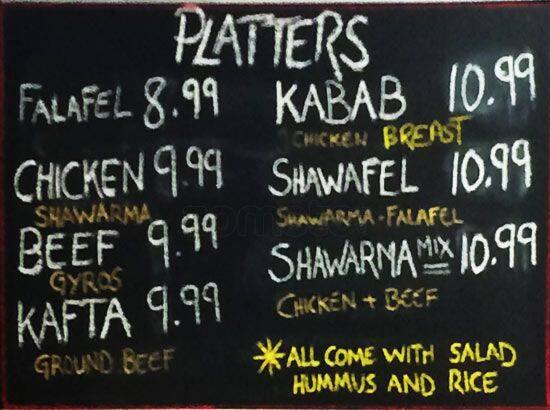 PLATTERS
FALAFEL 8.99
CHICKEN 9.99
SHAWARMA
BEEF 9.99
GYROS
KAFTA 9.99
GROUND BEEF
KABAB 10.99
CHICKEN BREAST
SHAWAFEL 10.99
SHAWARMA - FALAFEL
SHAWARMA MIX 10.99
CHICKEN + BEEF
*ALL COME WITH SALAD
HUMMUS AND RICE